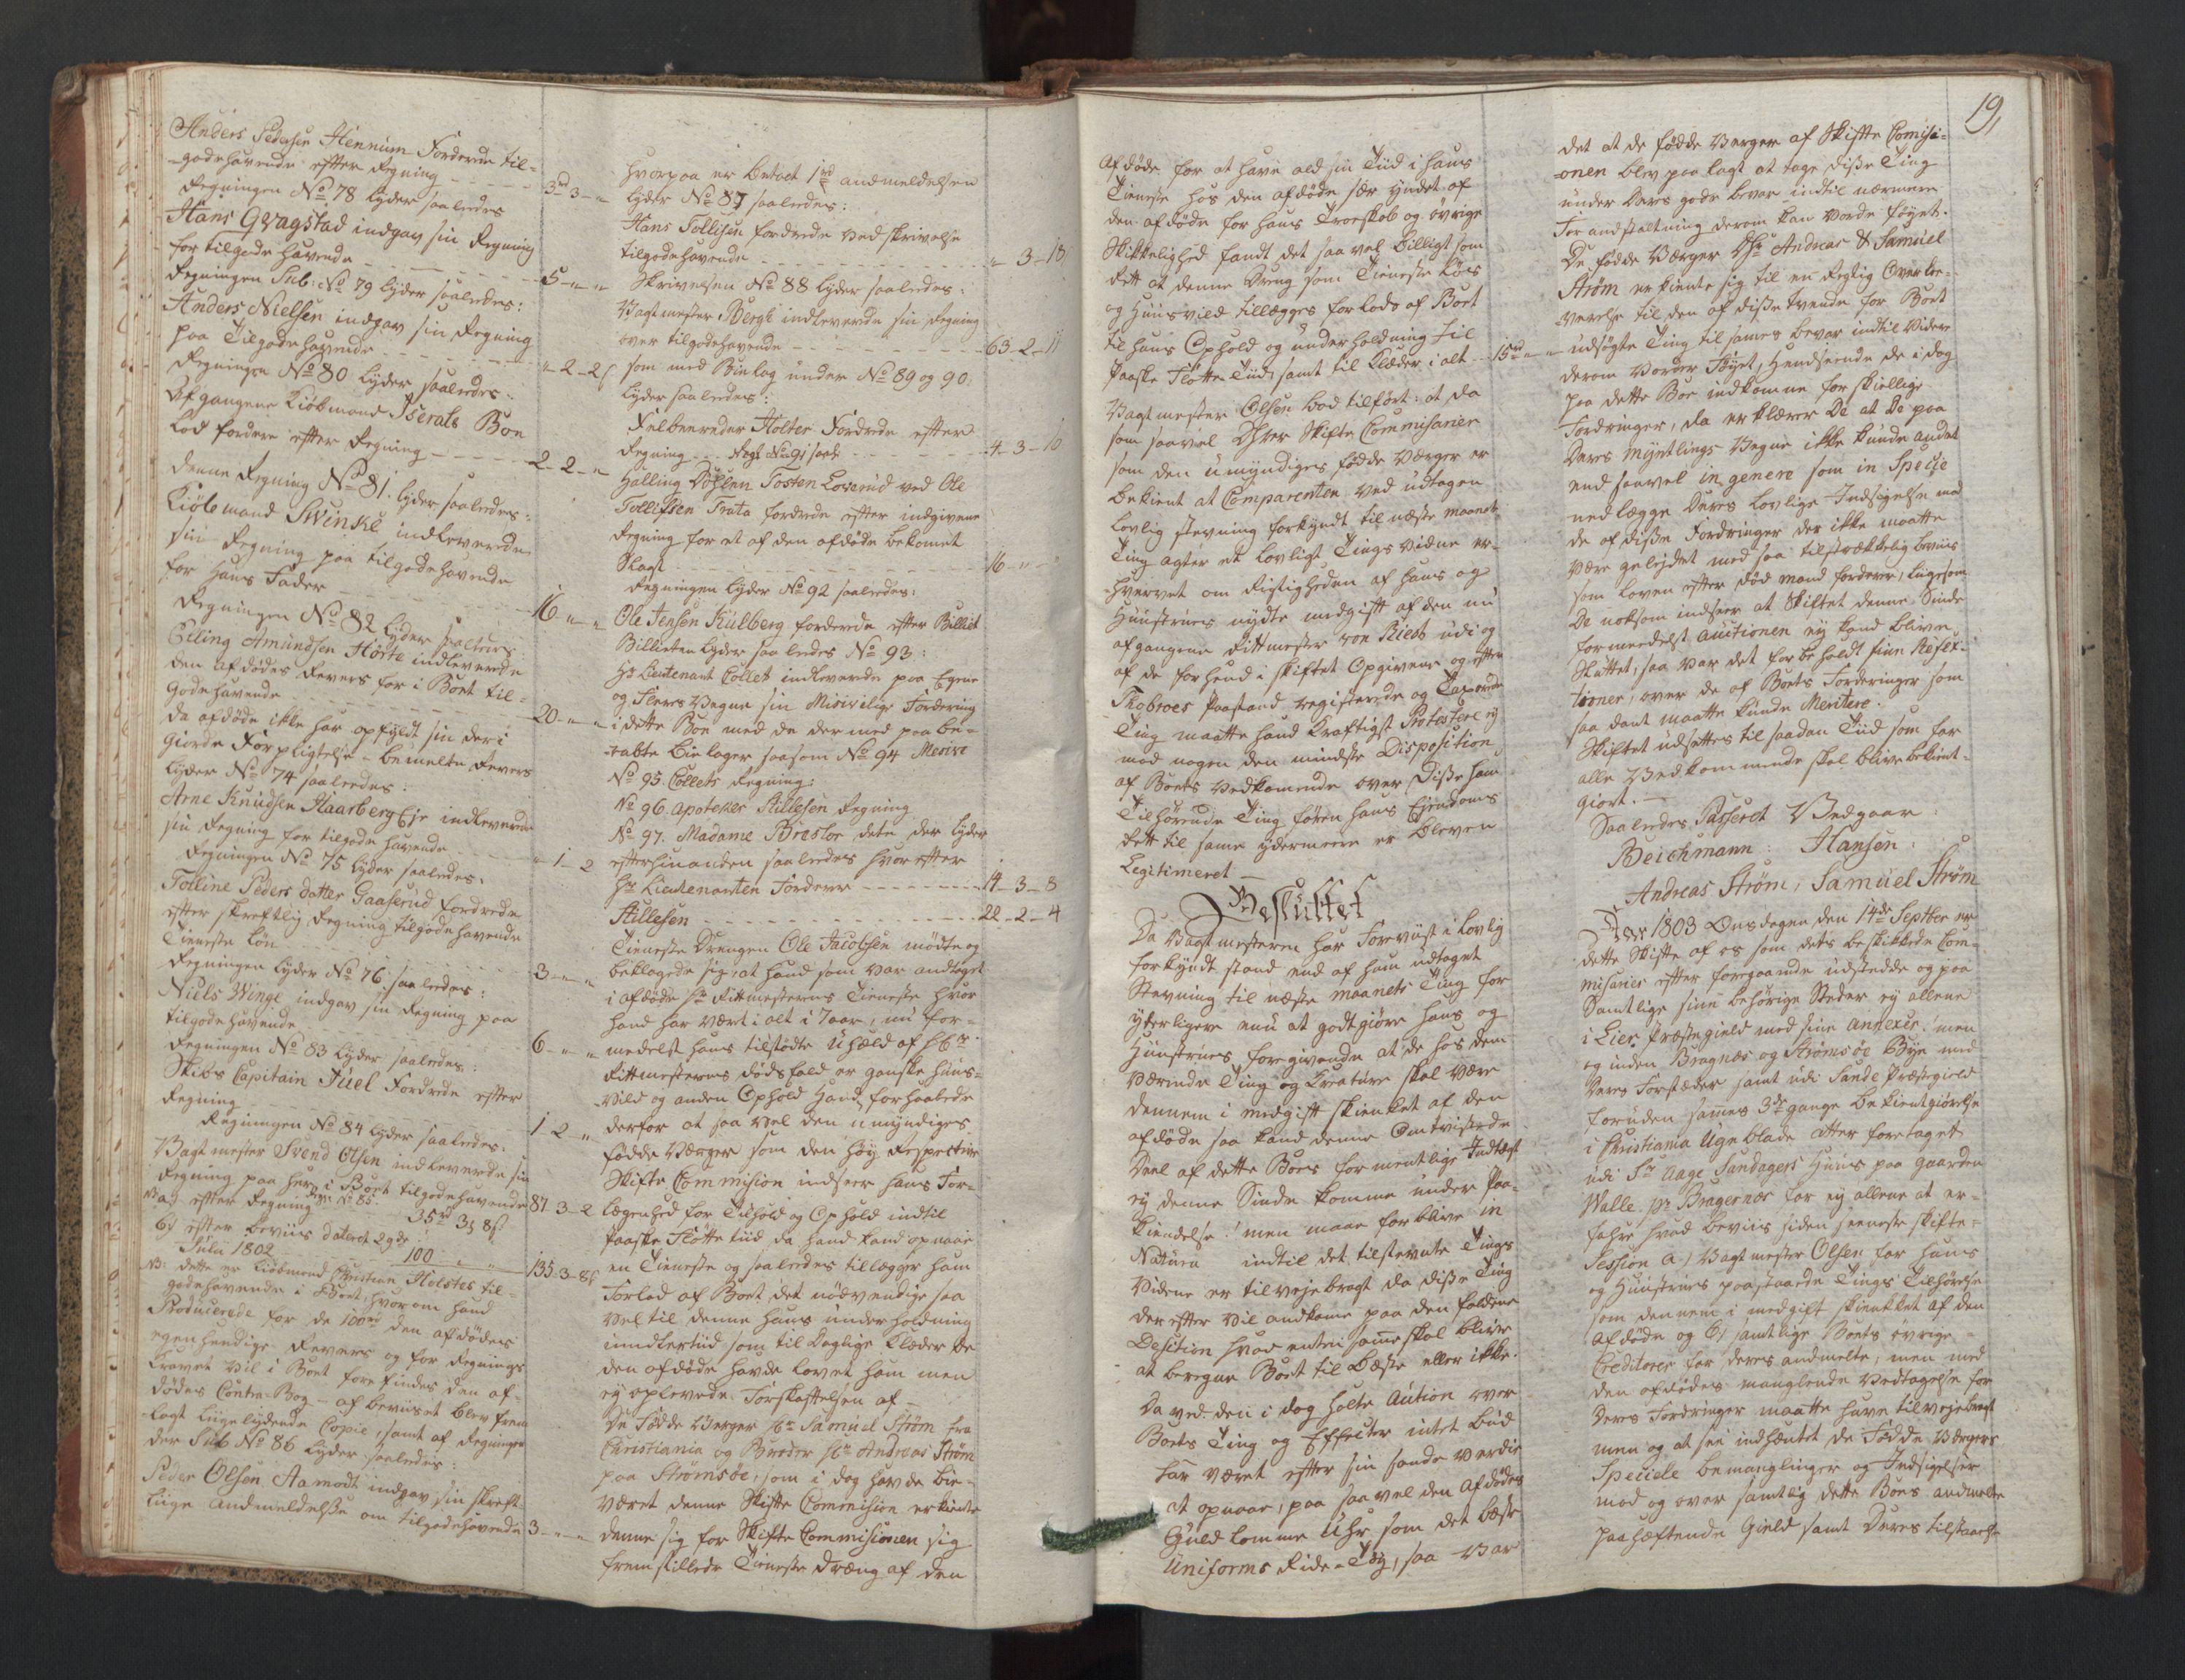 Anders Pedersen Hennum Fordrede til-
godehavende efter Regning 3rd 3 - "
Regningen No 78 lyder saaledes
Hans Gvagstad indgav sin Regning
for tilgode havende 5 - " - "
Regningen Sub: No 79 lyder saaledes:
Anders Nielsen indgav sin Regning
paa Tilgodehavende " - 2 - 2 s
Regningen No 80 lyder saaledes:
Afgangene Kiøbmand Iserals Boe
Lod fordre efter Regning 2 - 2 - "
denne Regning No 81. lyder saaledes:
Kiøbmand Svinske indleverede
sin Regning paa tilgodehavende
for hans Fader 16 - " - "
Regningen No 82 lyder saaledes
Elling Amundsen Hørte indleverede
den afdødes Revers for i Boet til-
Godehavende 20 - " - "
da afdøde ikke har opfyldt sin deri
Giorde Forpligtelse - bemelte Revers
lyder No 74 saaledes:
Arne Knudsen Haarberg Eje indleverede
sin Regning for tilgode havende " - 1 - 2
Regningen No 75 lyder saaledes.
Tolline Peders datter Gaaserud fordrede
efter skreftlig Regning tilgodehavende
Tieneste Løn 3 - " - "
Regningen lyder No 76 saaledes:
Niels Winge indgav sin Regning paa
tilgodehavende 6 - " - "
Regningen No 83 lyder saaledes:
Skibs Capitain Juel Fordrede efter
Regning 1 - 2 - "
Regningen No 84 lyder saaledes.
Vagtmester Svend Olsen indleverede sin
Regning paa hans i Boet tilgodehavende 87 - 3 - 2
a) efter Regning No 85 35rd 3 8s
b) efter beviis dateret 29de
Julii 1802 100 " " 135 - 3 - 8s
NB: dette er Kiøbmand Christian Holstes til-
godehavende i Boet, hvorom hand
Producerede for de 100rd den afdødes
egenhendige Revers og for Regnings
Kravet vil i Boet forefindes den af-
dødes Contra-Bog - af beviiset blev frem
lagt liigelydende Copie, samt af Regningen
der Sub No 86 lyder saaledes:
Peder Olsen Aamodt indgav sin skreft-
liige Andmeldelse om tilgodehavende 3 - " - "
hvorpaa er betalt 1rd andmeldelsen
lyder No 87 saaledes:
Hans Tollisen fordrede ved skrivelse
tilgodehavende " - 3 - 18
Skrivelsen No 88 lyder saaledes:
Vagtmester Bergh indleverede sin Regning
over tilgodehavende 63 - 2 - 11
som med Bielag under No 89 og 90.
lyder saaledes:
Feldbereder Holter Fordrede efter
Regning 4 - 3 - 10
Halling Tosten Loverud ved Ole
Tollissen Trata fordrede efter indgivene
Regning for et af den afdøde bekomet
Slagt 16 - " -
Regningen lyder No 92 saaledes:
Ole Jensen Kulberg fordrede efter Billiet
Billietten lyder saaledes No 93:
Hr Lieutenant Collet indleverede paa Egene
og Fleres Vegne sin Fordering
i dette Boe med de dermed paabe-
raabte Bielager saasom No 94
No 95. Collets Regning:
No 96. Apoteker Stillesen Regning
No 97. Madame dito der lyder
efterhinanden saaledes hvorefter
Hr Lieutenanten Fordrer 14 - 3 - 8
Stillesen 22 - 2 - 4
Tieneste Drengen Ole Jacobsen mødte og
beklagede sig, at hand som var andtaget
i afdøde Hr Rittmesterens Tieneste hvor
hand har vært i alt i 7 aar, nu for-
medelst hans tilstødte Uheld af Hr
Rittmesterens dødsfald er ganske huus-
vild og anden Ophold Hand forhaabede
derfor at saa vel den umyndiges
fødde Værger som den høy Respective
Skifte Commision indseer hans For-
lægenhed for Tilhold og Ophold indtil
Paaske Fløtte tiid da hand kand opnaae
en Tieneste og saaledes tillegger ham
Forlod af Boet det nødvendige saa
vel til denne hans underholdning
imidlertiid som til daglige Klæder de
den afdøde havde lovet ham men
ey oplevede Forskaffelsen af -
De Fødde Værger Hr Samuel Strøm fra
Christiania og Broder Hr Andreas Strøm
paa Strømsøe, som i dag havde bie-
været denne Skifte Commision erkiente
denne sig for Skifte Commisionen sig
fremstillede Tieneste dræng af den
19,
Afdøde for at have ald sin Tiid i hans
Tieneste hos den afdøde sær yndet af
den afdøde for hans Troeskab og øvrige
Skikkelighed fandt det saa vel billigt som
Rett at denne Dreng som Tieneste Løes
og Huusvild tillægges forlods af Boet
til hans Ophold og underholdning til
Paaske Fløtte-Tiid, samt til Klæder i alt 15rd " "
Vagtmester Olsen bad tilført: at da
som saavel Dhrer Skifte Commisarier
som den umyndiges fødde Værger er
bekient at Comparenten ved udtagen
Lovlig stevning forkyndt til næste maaneds
Ting agter et lovligt Tingsvidne er-
hvervet om Rigtigheden af hans og
Huustrues nydte medgift af den nu
afgangene Rittmester von Kieds udi og
af de forhend i skiftet Opgivene og efter
Skobroes Paastand registrerede og Taxerede
Ting maatte hand kraftigst Protestere ey
mod nogen den mindste Disposition
af Boets vedkomende over disse ham
Tilhørende Ting føren hans Ejendoms
Rett til same ydermeere er bleven
Legitimeret -
Besluttet
Da Vagtmesteren har Foreviist i Lovlig
forkyndt stand end af ham udtaget
Stevning til næste maaneds Ting for
yderligere end at godtgiøre hans og
Huustrues foregivende at de hos dem
værende Ting og Creature skal være
dennem i medgift skienket af den
afdøde saa kand denne Omtvistede
Deel af dette Boes formentlige Indtægt
ey denne Sinde komme under Paa-
kiendelse! men maae forblive in
Natura indtil det tilstevnte Tings
Vidne er tilvejebragt da disse Ting
derefter vil ankome paa den faldene
Desition hvad enten same skal blive
at beregne Boet til beste eller ikke.
Da ved den i dag holte Aution over
Boets Ting og Effecter intet bud
har været efter sin sande verdie
at opnaae, paa saavel den Afdødes
Guld Lomme Uhr, som det beste
Uniforms Ride-Tøy, saa var
det at de fødde Værger af Skifte Comisi-
onen blev paalagt at tage disse Ting
under Deres gode bevar indtil nærmere
Forandstaltning derom kan vorde føyet.
De fødde Værger Dhr Andreas & Samuel
Strøm erkiente sig til en Rigtig Overle-
verelse til den af disse tvende for Boet
udsøgte Ting til sames bevar indtil videre
derom vorder Føyet, Henseende de i dag
paa dette Boe indkomne forskiellige
Fordringer, da erklærer De at De paa
Deres Myndtlings Vegne ikke kunde andet
end saavel in genere som in Specie
nedlægge Deres lovlige Indsigelse mod
de af disse Fordringer der ikke maatte
være geleidet med saa tilstrækkelig beviis
som Loven efter død mand fordrer, liigesom
De noksom indseer at Skiftet denne Sinde
formedelst Auctionen ey kand blive
Sluttet, saa var det forbeholdt sine Reflec-
tioner, over de af Boets Forderinger som
saa dant maatte kunde Meritere.
Skiftet udsættes til saadan Tiid som for
alle Vedkommende skal blive bekient-
giort. -
Saaledes Passeret Vedgaar
Beichmann: Hansen:
Andreas Strøm, Samuel Strøm
Aar 1803 Onsdagen den 14de Septber er
dette Skifte af os som dets beskikkede Com-
misarier efter foregaaende udstedde og paa
Samtlige sine behørige Steder ey allene
i Lier Præstegield med sine Annexer! men
og inden Bragnæs og Strømsøe Bye med
Deres Forstæder samt udi Sande Præstegield
foruden sammes 3de gange bekientgiørelse
i Christiania Uge blade atter foretaget
udi Sr Aage Sandagers Huus paa Gaarden
Walle pr Bragernes for ey allene at er-
fahre hvad beviis siden seeneste skifte-
Session a) Vagtmester Olsen for hans
og Huustrues paastaaede Tings Tilhørelse
som dennem i medgift skienket af den
afdøde og b) samtlige Boets øvrige
Creditorer for deres andmelte, men med
den afdødes manglende vedtagelse for
deres Fordringer maatte have tilvejebragt
men og at see indhentet de Fødde Værgers
Specielle bemanglinger og Indsigelser
mod og over samtlig dette Boes andmelte
paahæftende Gield samt Deres tilstaaelse